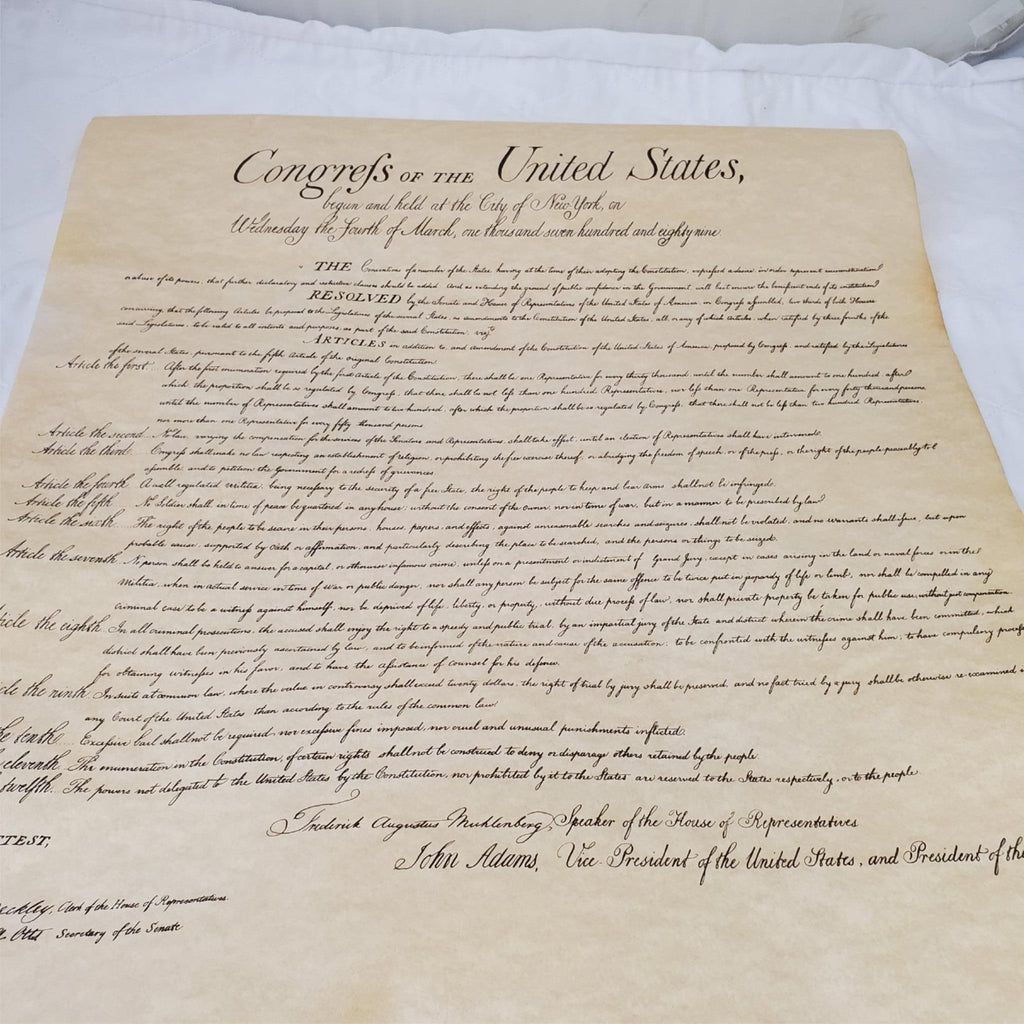 Congreſs OF THE United States,
begun and held at the City of New York, on
Wednesday the Fourth of March, one thousand seven hundred and eighty nine.
THE Conventions of a number of the States having at the time of their adopting the Constitution, expressed a desire in order
abuse of its powers, that further declaratory and restrictive clauses should be added And as extending the ground of public confidence in the Government, will best insure the beneficent ends of its institution
RESOLVED by the Senate and House of Representatives of the United States of America, in Congreſs aſsembled, two thirds of both Houses
concurring, that the following Articles be proposed to the Legislatures of the several States, as amendments to the Constitution of the United States, all or any of which Articles, when ratified by three fourths of the
said Legislatures, to be valid to all intents and purposes, as part of the said Constitution. viz.t
ARTICLES in addition to, and amendment of the Constitution of the United States of America, proposed by Congreſs, and ratified by the Legislatures
of the several States, pursuant to the fifth Article of the original Constitution.
Article the first. After the first enumeration required by the first Article of the Constitution, there shall be one Representative for every thirty thousand, until the number shall amount to one hundred, after
which the proportion shall be so regulated by Congreſs, that there shall not be leſs than one hundred Representatives, nor leſs than one Representative for every forty thousand persons,
until the number of Representatives shall amount to two hundred, after which the proportion shall be so regulated by Congreſs, that there shall not be leſs than two hundred Representatives,
nor more than one Representative for every fifty thousand persons
Article the second. No law, varying the compensation for the services of the Senators and Representatives, shall take effect, until an election of Representatives shall have intervened.
Article the third. Congreſs shall make no law respecting an establishment of religion, or prohibiting the free exercise thereof, or abridging the freedom of speech, or of the preſs, or the right of the people peaceably to
aſsemble, and to petition the Government for a redreſs of grievances.
Article the fourth. A well regulated militia, being neceſsary to the security of a free State, the right of the people to keep and bear Arms shall not be infringed.
Article the fifth. No Soldier shall, in time of peace be quartered in any house, without the consent of the Owner, nor in time of war, but in a manner to be prescribed by law
Article the sixth. The right of the people to be secure in their persons, houses, papers, and effects, against unreasonable searches and seizures, shall not be violated, and no warrants shall iſsue, but upon
probable cause, supported by Oath or affirmation, and particularly describing the place to be searched, and the persons or things to be seized.
Article the seventh. No person shall be held to answer for a capital, or otherwise infamous crime, unleſs on a presentment or indictment of Grand Jury, except in cases arising in the land or naval forces or in the
Militia, when in actual service in time of war or public danger, nor shall any person be subject for the same offence to be twice put in jeopardy of life or limb, nor shall be compelled in any
criminal case to be a witneſs against himself, nor be deprived of life, liberty, or property, without due proceſs of law, nor shall private property be taken for public use, without just compensation.
icle the eighth In all criminal prosecutions, the accused shall enjoy the right to a speedy and public trial, by an impartial jury of the State and district wherein the crime shall have been committed, which
district shall have been previously ascertained by law, and to be informed of the nature and cause of the accusation, to be confronted with the witneſses against him, to have compulsory proceſs
for obtaining witneſses in his favor, and to have the aſsistance of counsel for his defence.
cle the ninth. In suits at common law, where the value in controversy shall exceed twenty dollars, the right of trial by jury shall be preserved, and no fact tried by a jury shall be otherwise re-examined i
any Court of the United States than according to the rules of the common law
he tenth. Exceſsive bail shall not be required, nor exceſsive fines imposed, nor cruel and unusual punishments inflicted.
eleventh. The enumeration in the Constitution, of certain rights shall not be construed to deny or disparage others retained by the people.
twelfth. The powers not delegated to the United States by the Constitution, nor prohibited by it to the States are reserved to the States respectively, or to the people.
Frederick Augustus Muhlenberg, Speaker of the House of Representatives
John Adams, Vice-President of the United States, and President of the
TTEST,
eckley, Clerk of the House of Representatives.
Otis Secretary of the Senate